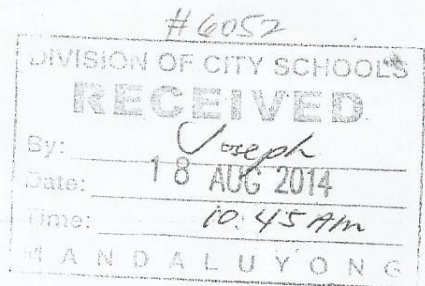 #6052
DIVISION OF CITY SCHOOLS
RECEIVED
By: Joseph
Date: 18 AUG 2014
Time: 10:45 AM
MANDALUYONG